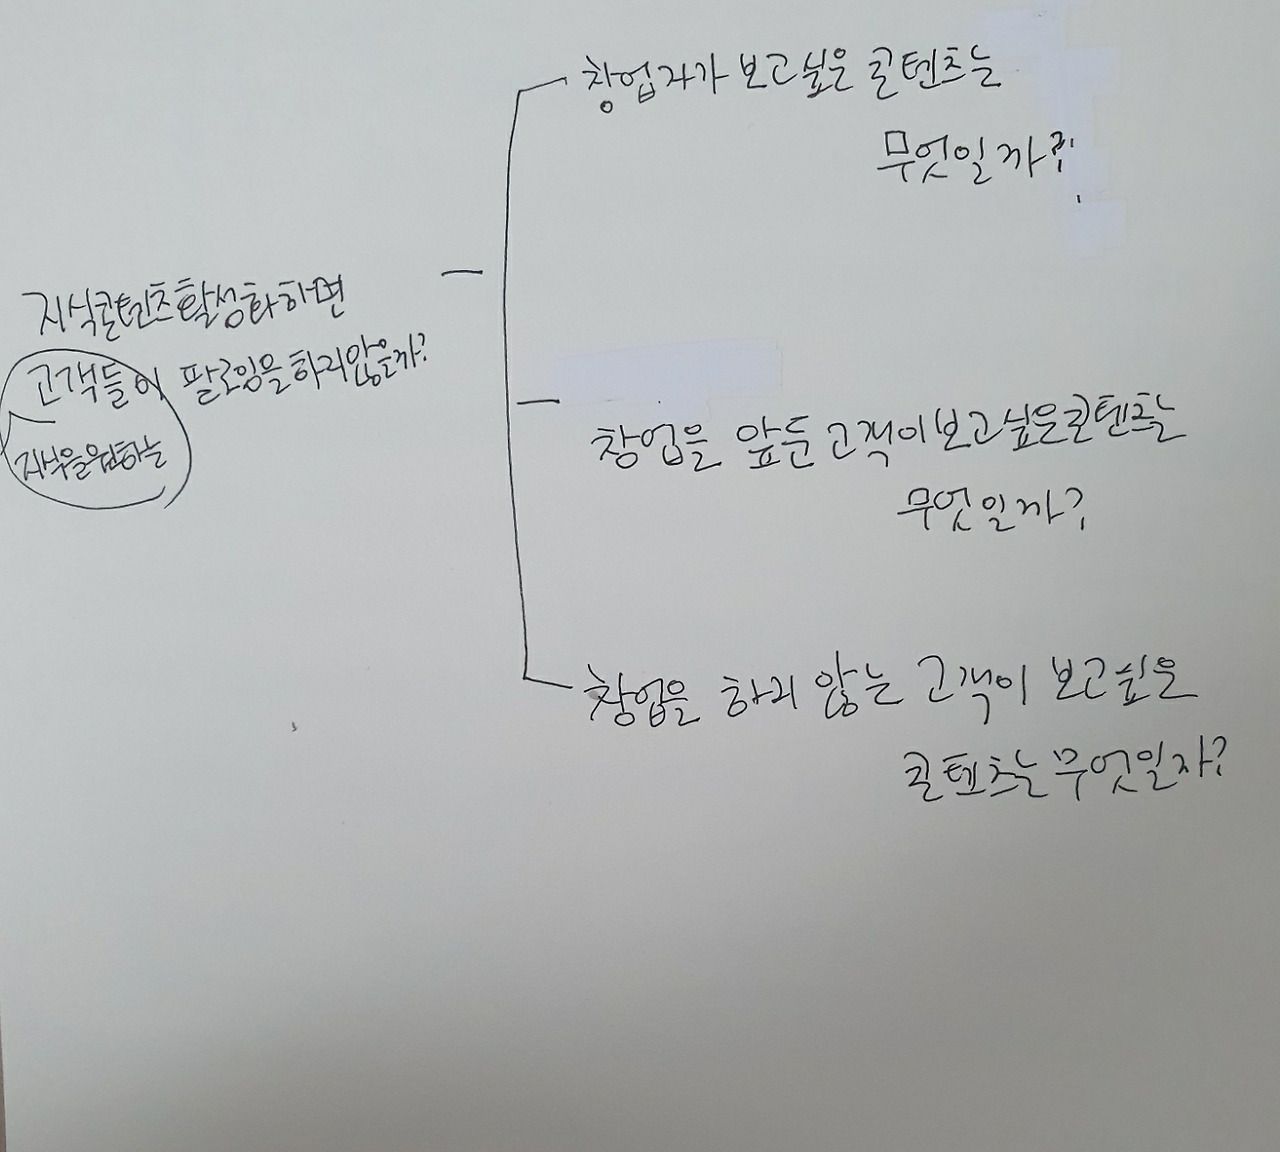 지식콘텐츠활성화하면
고객들이 팔로잉을하지않을까?
지식을원하는
창업자가 보고싶은 콘텐츠는
무엇일까?
창업을 앞둔고객이보고싶은콘텐츠는
무엇일까?
창업을 하지 않는 고객이 보고싶은
콘텐츠는무엇일까?